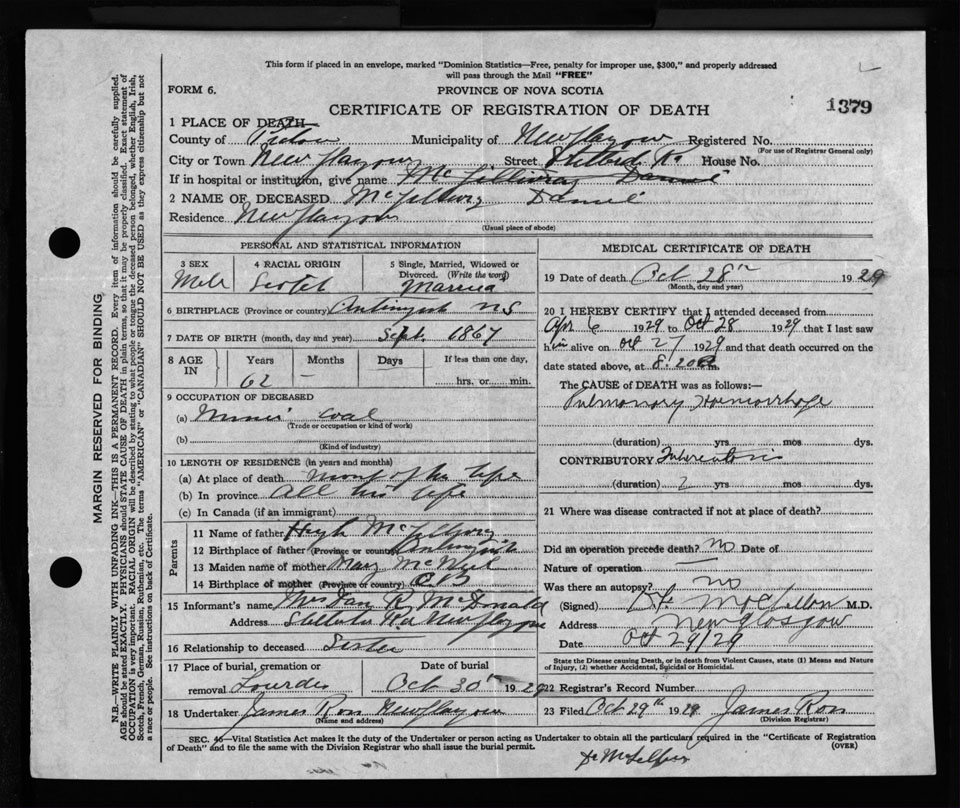 This form if placed in an envelope, marked "Dominion Statistics—Free, penalty for improper use, $300," and properly addressed
will pass through the Mail "FREE"
FORM 6.
PROVINCE OF NOVA SCOTIA
CERTIFICATE OF REGISTRATION OF DEATH
1379
1 PLACE OF DEATH
County of Pictou Municipality of New Glasgow Registered No.
(For use of Registrar General only)
City or Town New Glasgow Street House No.
If in hospital or institution, give name McGillivray Daniel
2 NAME OF DECEASED Daniel
Residence New Glasgow
(Usual place of abode)
PERSONAL AND STATISTICAL INFORMATION
3 SEX
Male
4 RACIAL ORIGIN
Scotch
5 Single, Married, Widowed or
Divorced. (Write the word)
Married
6 BIRTHPLACE (Province or country) Antigonish NS
7 DATE OF BIRTH (month, day and year) Sept. 1867
8 AGE IN
Years Months Days If less than one day,
62 — hrs. or min.
9 OCCUPATION OF DECEASED
(a) Miner coal
(Trade or occupation or kind of work)
(b)
(Kind of industry)
10 LENGTH OF RESIDENCE (in years and months)
(a) At place of death most of his life
(b) In province All his life
(c) In Canada (if an immigrant)
Parents
11 Name of father Hugh
12 Birthplace of father (Province or country) Antigonish
13 Maiden name of mother Mary McNeil
14 Birthplace of mother (Province or country) C.B
15 Informant's name Mrs Dan R McDonald
Address New Glasgow
16 Relationship to deceased Sister
17 Place of burial, cremation or
removal Lourdes
Date of burial
Oct 30th 1929
18 Undertaker James Ross New Glasgow
(Name and address)
MEDICAL CERTIFICATE OF DEATH
19 Date of death Oct 28th 1929
(Month, day and year)
20 I HEREBY CERTIFY that I attended deceased from
Apr 6 1929 to Oct 28 1929 that I last saw
him alive on Oct 27 1929 and that death occurred on
date stated above, at 8.20 m.
The CAUSE of DEATH was as follows:—
Pulmonary Haemorrhage
(duration) yrs mos dys.
CONTRIBUTORY Tuberculosis
(duration) 2 yrs mos dys.
21 Where was disease contracted if not at place of death?
Did an operation precede death? no Date of
Nature of operation —
Was there an autopsy? no
(Signed) M.D.
Address New Glasgow
Date Oct 29/29
State the Disease causing Death, or in death from Violent Causes, state (1) Means and Nature
of Injury, (2) whether Accidental, Suicidal or Homicidal.
22 Registrar's Record Number
23 Filed Oct 29th 1929 James Ross
(Division Registrar)
SEC. 46—Vital Statistics Act makes it the duty of the Undertaker or person acting as Undertaker to obtain all the particulars required in the "Certificate of Registration
of Death" and to file the same with the Division Registrar who shall issue the burial permit.
(OVER)
MARGIN RESERVED FOR BINDING
N.B.—WRITE PLAINLY WITH UNFADING INK—THIS IS A PERMANENT RECORD. Every item of information should be carefully supplied.
AGE should be stated EXACTLY. PHYSICIANS should STATE CAUSE OF DEATH in plain terms, so that it may be properly classified. Exact statement of
OCCUPATION is very important. RACIAL ORIGIN will be described by stating to what people or tongue the deceased person belonged, whether English, Irish,
Scotch, French, German, Russian, Ruthenian, etc. The terms "AMERICAN" or "CANADIAN" SHOULD NOT BE USED as they express citizenship but not
a race or people. See instructions on back of Certificate.